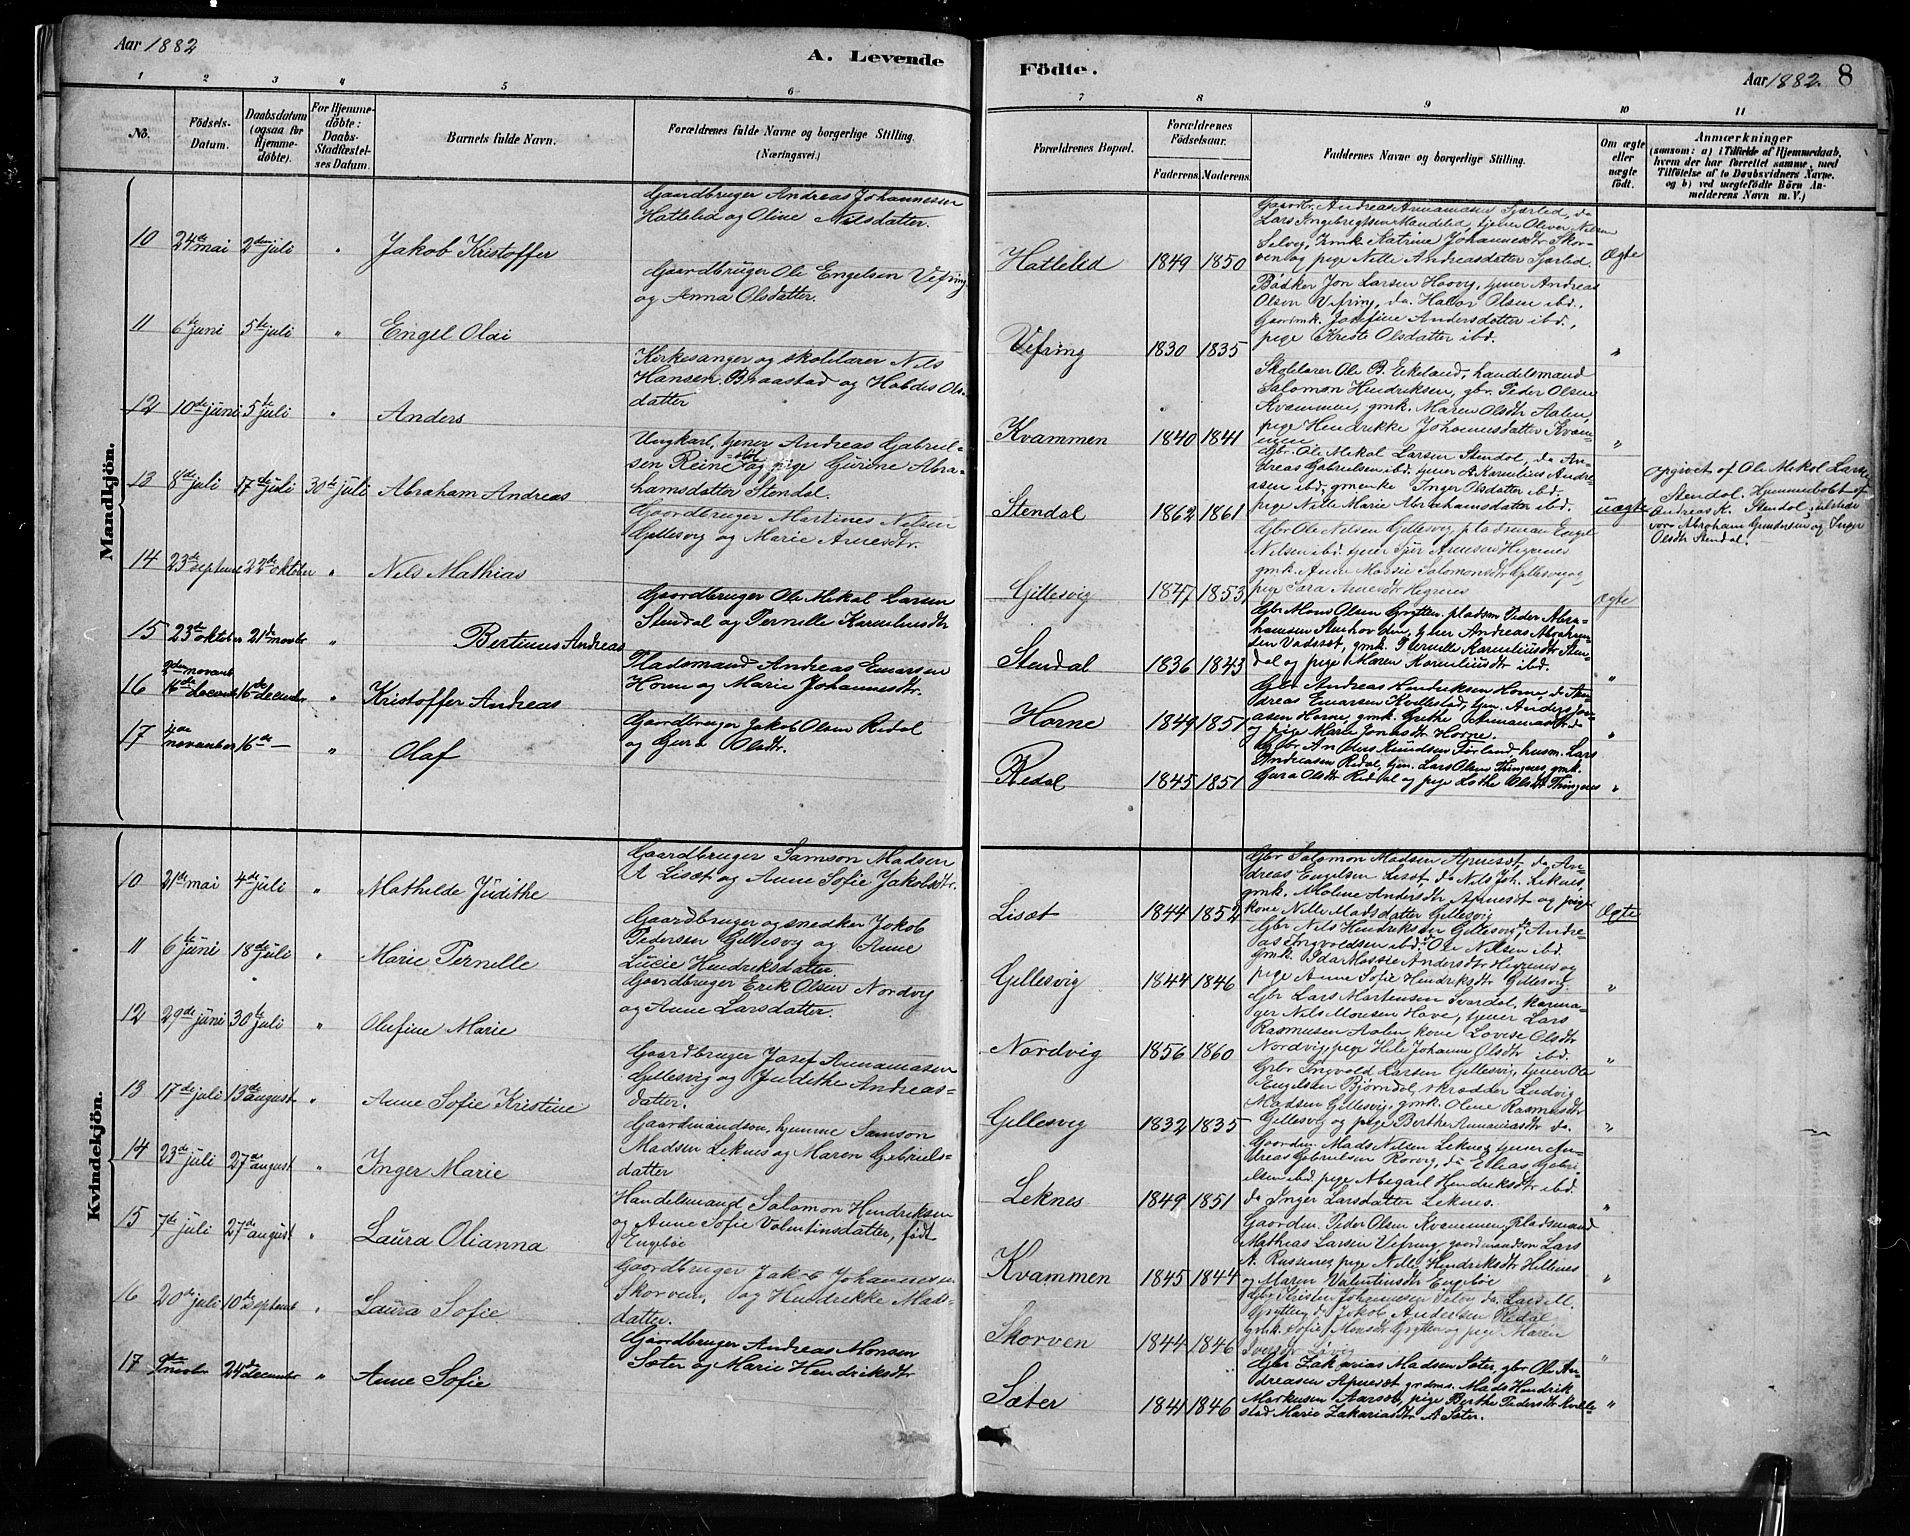 Aar 1882
A. Levende Födte.
Aar 1882. 8
1 2 3 4 5 6 7 8 9 10 11
No.
Födsels-Datum.
Daabsdatum (ogsaa for Hjemmedöbte).
For Hjemmedöbte: Daabs-Stadfæstelses Datum.
Barnets fulde Navn.
Forældrenes fulde Navne og borgerlige Stilling.
(Næringsvei.)
Forældrenes Bopæl.
Forældrenes Födselsaar.
Faderens. Moderens.
Faddernes Navne og borgerlige Stilling.
Om ægte eller uægte födt.
Anmærkninger
(saasom: a) i Tilfælde af Hjemmedaab, hvem der har forrettet samme, med Tilföielse af to Daabsvidners Navne, og b) ved uægtefödte Börn Anmelderens Navn m. V.)
Mandkjön.
10 24de mai 2den juli " Jakob Kristoffer
Gaardbruger Andreas Johannesen
Hatleled og Oline Nilsdatter.
Hatleled 1849 1850
Lars Ingebrigtsen Mandeled, tjener Oliver Nilsen
Selvig, Katrine Johannesdtr Skor-
ven og pige Nille Andreasdatter
Ægte
11 6te juni 5te juli " Engel Olai
Gaardbruger Ole Engelsen Vefring
og Anna Olsdatter.
Vefring 1830 1835
Bødker Jon Larsen Haavig, tjener Andreas
Olsen Vefring, do. Halvor Olsen ibd.
Josefine Andersdatter ibd.,
pige Kriste Olsdatter ibd.
"
12 10de juni 5te juli " Anders
Kirkesanger og skolelærer Nils
Hansen Braastad og Ols-
datter
Kvammen 1840 1841
Skolelærer Ole B. Eikeland, handelsmand
Salomon Hendriksen, gbr. Peder Olsen
Kvammen, gmk. Maren Olsdtr Aalen,
pige Hendrikke Johannesdatter Kvam-
men
"
13 8de juli 17de juli 30te juli Abraham Andreas
Ungkarl, tjener Andreas Gabriel-
sen Reine og pige Gurine Abra-
hamsdatter Stendal.
Stendal 1862 1861
Gbr. Ole Mikal Larsen Stendal, do An-
dreas Gabrielsen ibd, tjener Kornelius Andre-
asen ibd, gmenke Inger Olsdatter ibd.
pige Nille Marie Abrahamsdatter ibd.
uægte
Opgivet af Ole Mikal Larsen
Stendal. Hjemmedøbt af
Andreas K. Stendal, tilstede
vare Abraham Gundersen og Inger
Olsdtr Stendal.
14 23de septemb 22de oktober " Nils Mathias
Gaardbruger Martines Nilsen
Gillesvig og Marie Arnesdtr.
Gillesvig 1847 1853
Gbr Ole Nilsen Gillesvig, pladsman Engel
Nilsen ibd. tjener Sjur Arnesen Hegrenes
gmk. Anne Massie Salomonsdtr Gillesvig og
pige Sara Arnesdtr Hegrenes
Ægte
15 23de oktober 21de novbr " Bertinus Andreas
Gaardbruger Ole Mikal Larsen
Stendal og Pernille Korneliusdtr
Stendal 1836 1843
Gbr Mons Olsen Grytten, pladsm Peder Abra-
hamsen Stenhovden, tjener Andreas Abraham-
sen Vadeset, gmk. Pernille Korneliusdtr Sten-
dal og pige Maren Korneliusdtr ibd.
"
16 2den novemb 16de decemb 16de december " Kristoffer Andreas
Pladsmand Andreas Einarsen
Horne og Marie Johannesdtr.
Horne 1849 1851
Gbr Andreas Hendriksen Horne, do An-
dreas Einarsen Kvellestad, tjen. Anders Jon-
asen Horne, gmk. Grethe
og pige Marie Jonasdtr Horne.
"
17 november 16de — " Olaf
Gaardbruger Jakob Olsen Redal
og Gura Olsdtr.
Redal 1845 1851
Gbr Anders Knudsen Førland, husm. Lars
Andreasen Redal, tjen. Lars Olsen Thingnes, gmk.
Gura Olsdtr Redal og pige Lothe Olsdtr Thingnes
"
Kvindekjön.
10 21de mai 4de juli " Mathilde Judithe
Gaardbruger Samson Madsen
A Lisæt og Anne Sofie Jakobsdtr.
Lisæt 1844 1852
Gbr Salomon Madsen Apnesæt, do An-
dreas Engelsen Lisæt, do Nils Joh. Leknes,
gmk. Malene Andersdtr Apnesæt og pige
kone Nille Madsdatter Gillesvig
Ægte
11 6te juni 18de juli " Marie Pernille
Gaardbruger og snedker Jakob
Pedersen Gillesvig og Anne
Lucie Hendriksdatter
Gillesvig 1844 1846
Gbr Nils Hendriksen Gillesvig, do Andre-
as Ingvoldsen ibd. Ole Nilsen ibd.
gmk. Ida Massie Andersdtr Hegrenes og
pige Anne Sofie Hendriksdtr Gillesvig.
"
12 29de juni 30te juli " Olufine Marie
Gaardbruger Erik Olsen Nordvig
og Anne Larsdatter.
Nordvig 1856 1860
Gbr Lars Martensen Svardal, kærma-
ger Nils Monsen Have, tjener Lars
Rasmusen Aalen, kone Lovise Olsdtr
Nordvig, pige Hele Johanne Olsdtr ibd.
"
13 17de juli 13de august " Anne Sofie Kristine
Gaardbruger Josef Annamasen
Gillesvig og Judithe Andreas-
datter.
Gillesvig 1832 1835
Gbr Ingvold Larsen Gillesvig, tjener Ole
Engelsen Bjørndal, skrædder Ludvig
Madsen Gillesvig, gmk. Oline Rasmusdtr
Gillesvig og pige Berthe Annaniasdtr do.
"
14 23de juli 27de august " Inger Marie
Gaardmandsøn, hjemme Samson
Madsen Leknes og Maren Gabriels-
datter
Leknes 1849 1851
Gaardm. Mads Nilsen Leknes, tjener An-
dreas Gabrielsen Rørvig, do Elias Gabri-
elsen ibd. pige Abigael Hendriksdtr ibd.
do Inger Larsdatter Leknes.
"
15 7de juli 27de august " Laura Olianna
Handelsmand Salomon Hendriksen
og Anne Sofie Valentinsdatter, født
Engebøe
Kvammen 1845 1844
Gaardm. Peder Olsen Kvammen, Pladsmand
Mathias Larsen Vefring, gaardmandsøn Lars
A. Russenes, pige Nille Hendriksdtr Hellenes
og Maren Valentinsdtr Engebøe
"
16 20de juli 10de septemb " Laura Sofie
Gaardbruger Jakob Johannessen
Skorven, og Hendrikke Mads-
datter.
Skorven 1844 1846
Gbr Kristen Johannessen Selvig, do. Lars M.
Grytten, do Jakob Andersen Redal,
gmk. Sofie Monsdtr Grytten og pige Maren
"
17 novbr 24de december " Anne Sofie
Gaardbruger Andreas Monsen
Sæter og Marie Hendriksdtr
Sæter 1841 1846
Gbr Zakarias Madsen Sæter, gbr Ole An-
dreasen Apnesæt, grdms. Mads Hendrik
Markusen Aarsæt, pige Berthe Pedersdtr Kvelle-
stad, Marie Zakariasdtr A. Sæter.
"